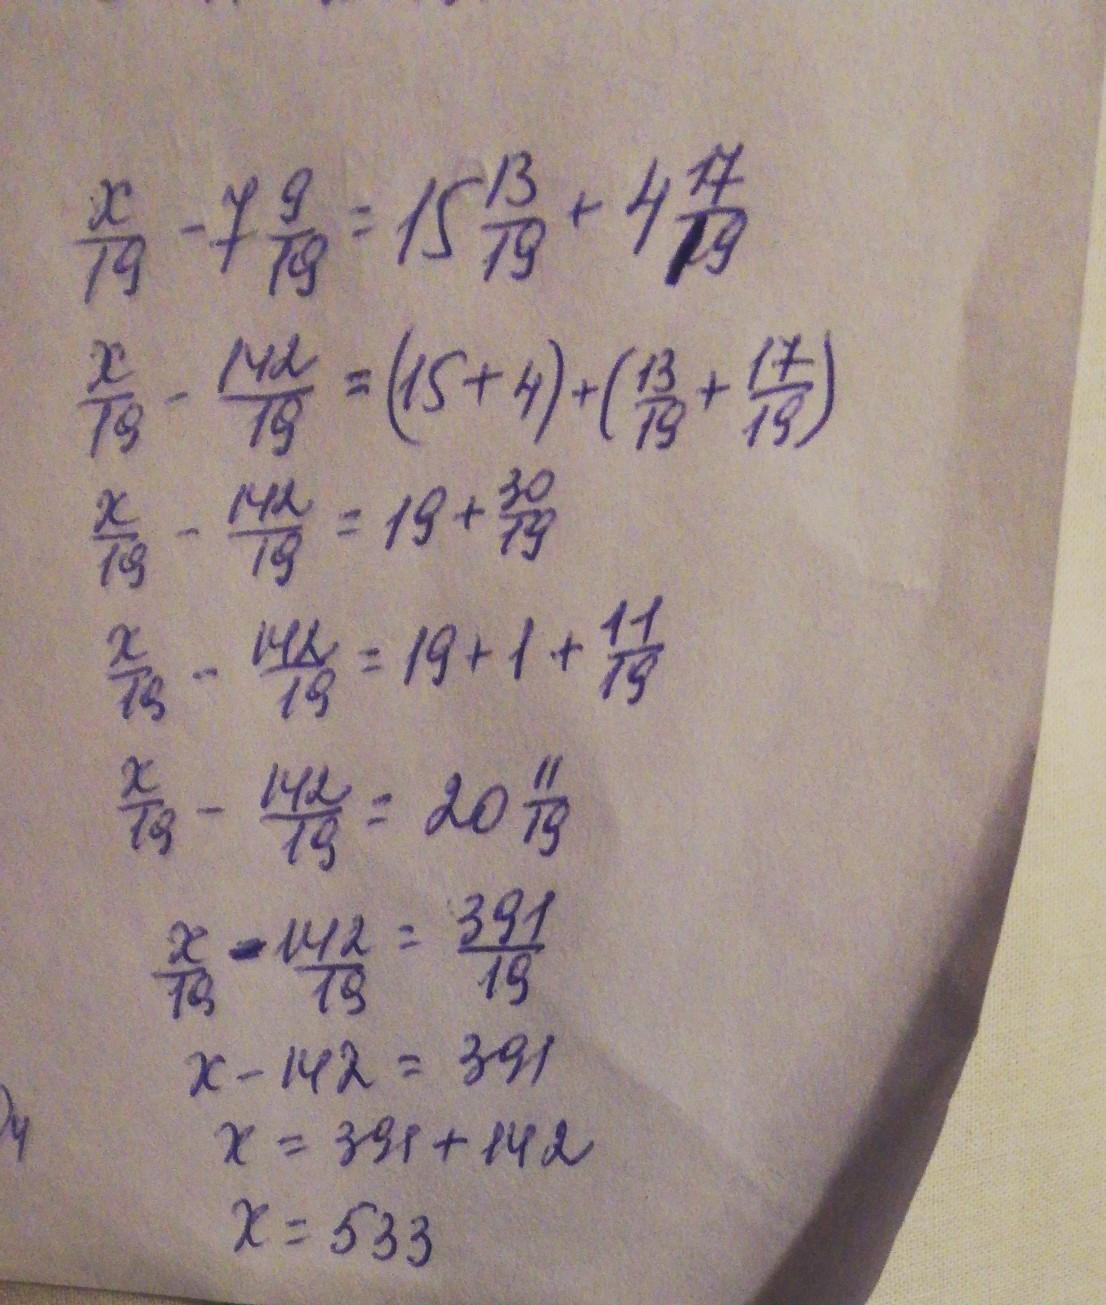 x/19 - 7 9/19 = 15 13/19 + 4 17/19
x/19 - 142/19 = (15 + 4) + (13/19 + 17/19)
x/19 - 142/19 = 19 + 30/19
x/19 - 142/19 = 19 + 1 + 11/19
x/19 - 142/19 = 20 11/19
x/19 - 142/19 = 391/19
x - 142 = 391
x = 391 + 142
x = 533